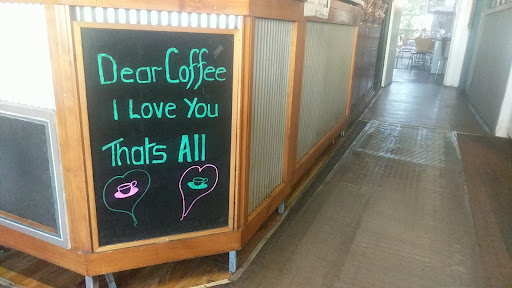 Dear Coffee
I Love You
Thats All